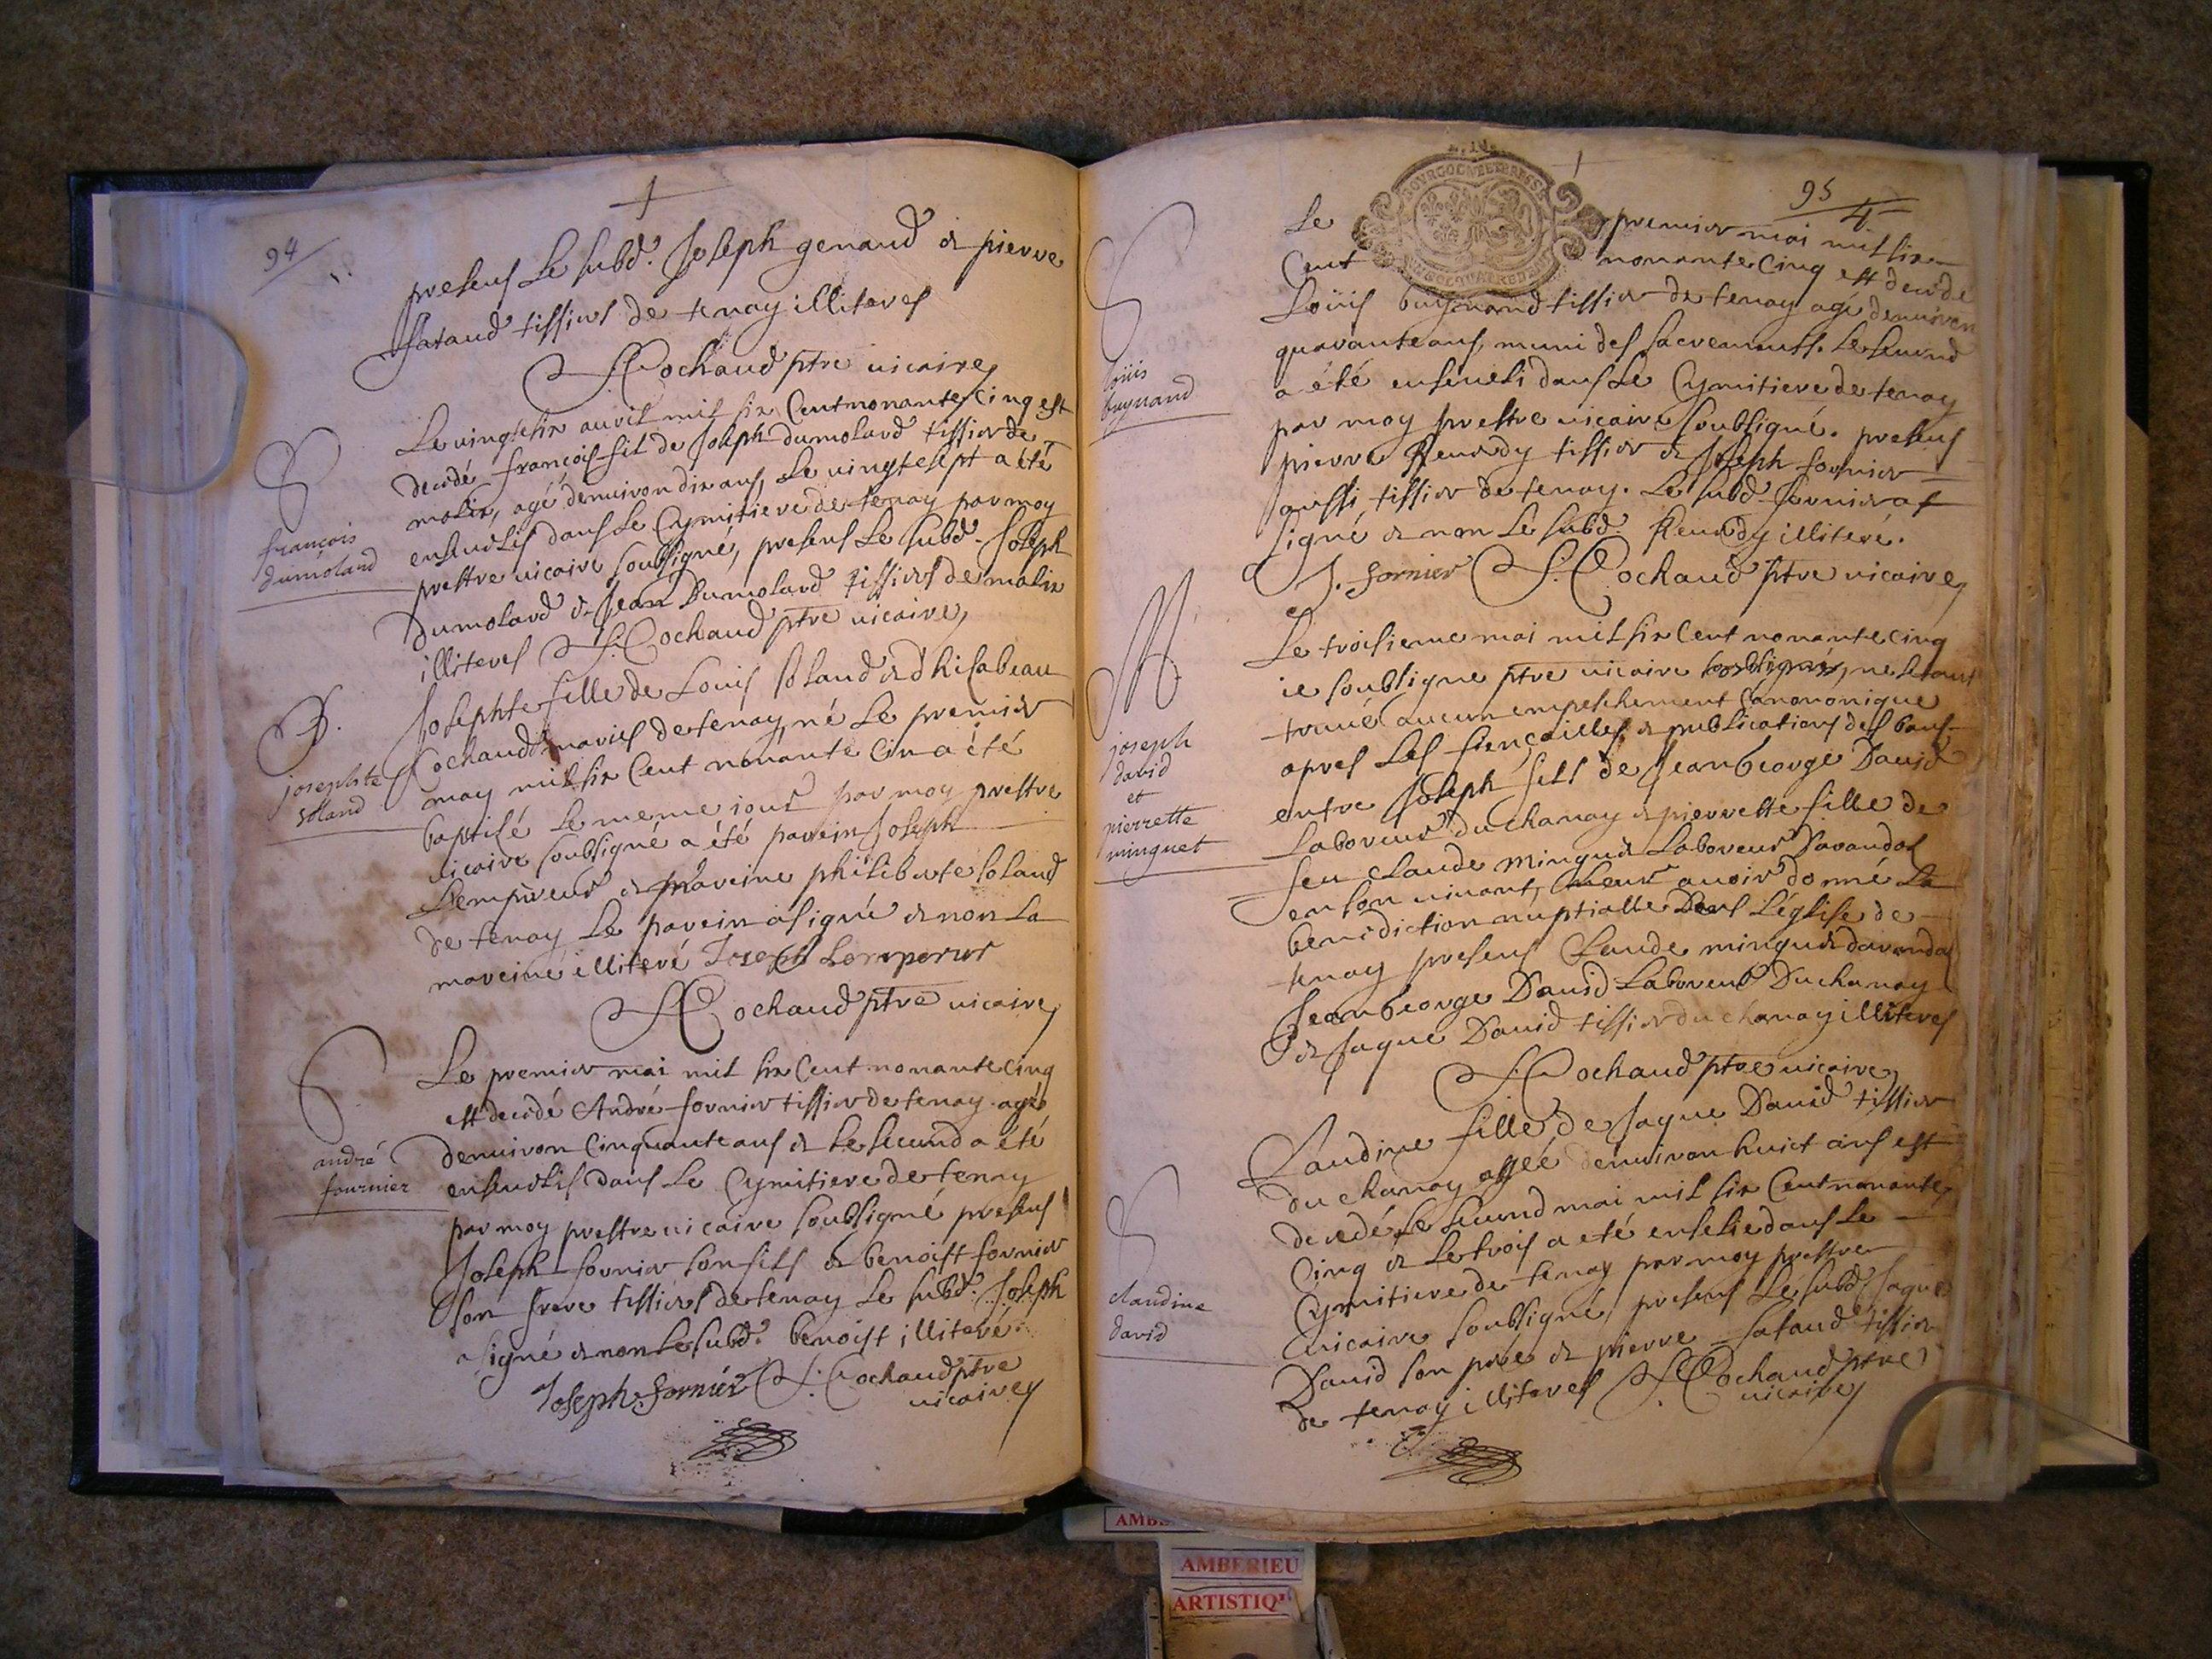 94
presens Le subd. Joseph genaud & pierre
sataud tissiers de tenay illiteres
Cochaud ptre vicaire
françois
dumolard
Le vingtesix auvril mil six Cent nonante Cinq est
decedé françois fil de Joseph dumolard tissier de
malix, agé denuiron dix ans, Le vingtesept a été
enseuelis dans Le Cymitiere de tenay par moy
prestre vicaire soubsigné, presens Le subd. Joseph
Dumolard & Jean Dumolard tissiers de malix
illiteres S. Cochaud ptre vicaire
B.
josephte
soland
Josephte fille de Louis soland & d'hisabeau
Cochaud mariés de tenay, né Le premier
may mil six Cent nonante Cin a été
baptisé Le meme iour par moy prestre
vicaire soubsigné a été parein Joseph
Lempereur & mareine philiberte soland
de tenay Le parein a signé & non La
mareine illiteré Joseph Lemperur
Cochaud ptre vicaire
andré
fournier
Le premier mai mil six Cent nonante Cinq
est decedé André fornier tissier de tenay agé
denuiron Cinquante ans & Le second a été
enseuelis dans Le Cymitiere de tenay
par moy prestre vicaire soubsigné presens
Joseph fornier son fils & benoist fornier
son frere tissiers de tenay Le subd. Joseph
a signé & non Le subd. benoist illiteré.
Joseph. fornier S. Cochaud ptre
vicaire
95
4
Le premier mai mil six
Cent nonante Cinq est decedé
loüis
buynand
Loüis buynand tissier de tenay agé denuiron
quarante ans, muni des sacremants. Le second
a été enseueli dans Le Cymitiere de tenay
par moy prestre vicaire soubsigné. presens
pierre Reuerdy tissier & Joseph fornier
aussi tissier de tenay. Le subd. fornier a
signé & non Le subd. Reuerdy illiteré.
J. fornier S. Cochaud ptre vicaire
M.
joseph
david
et
pierrette
minguet
Le troisieme mai mil six Cent nonante Cinq
ie soubsigne ptre vicaire soubsigné, ne s'etant
trouué aucun empeschement Canononique
apres Les fiençailles & publications des bans
entre Joseph fils de Jean George David
Laboreur du chanay & pierrette fille de
feu Claude minguet Laboreur Davandos
en son vivant, Leur auoir donné La
benediction nuptialle Dans L'églisse de
tenay presens Claude minguet davandas
Jean George David Laboreur Du chanay
& Jaque David tissier du chanay illiteres
S. Cochaud ptre vicaire
claudine
david
Claudine fille de Jaque David tissier
du chanay agée denuiron huict ans est
decedé Le second mai mil six Cent nonante
Cinq & Le trois a été enselie dans Le
Cymitiere de tenay par moy prestre
vicaire soubsigné, presens Le subd. Jaque
David son pere & pierre sataud tissier
de tenay illiteres S. Cochaud ptre
vicaire
AMBERIEU
ARTISTIQ